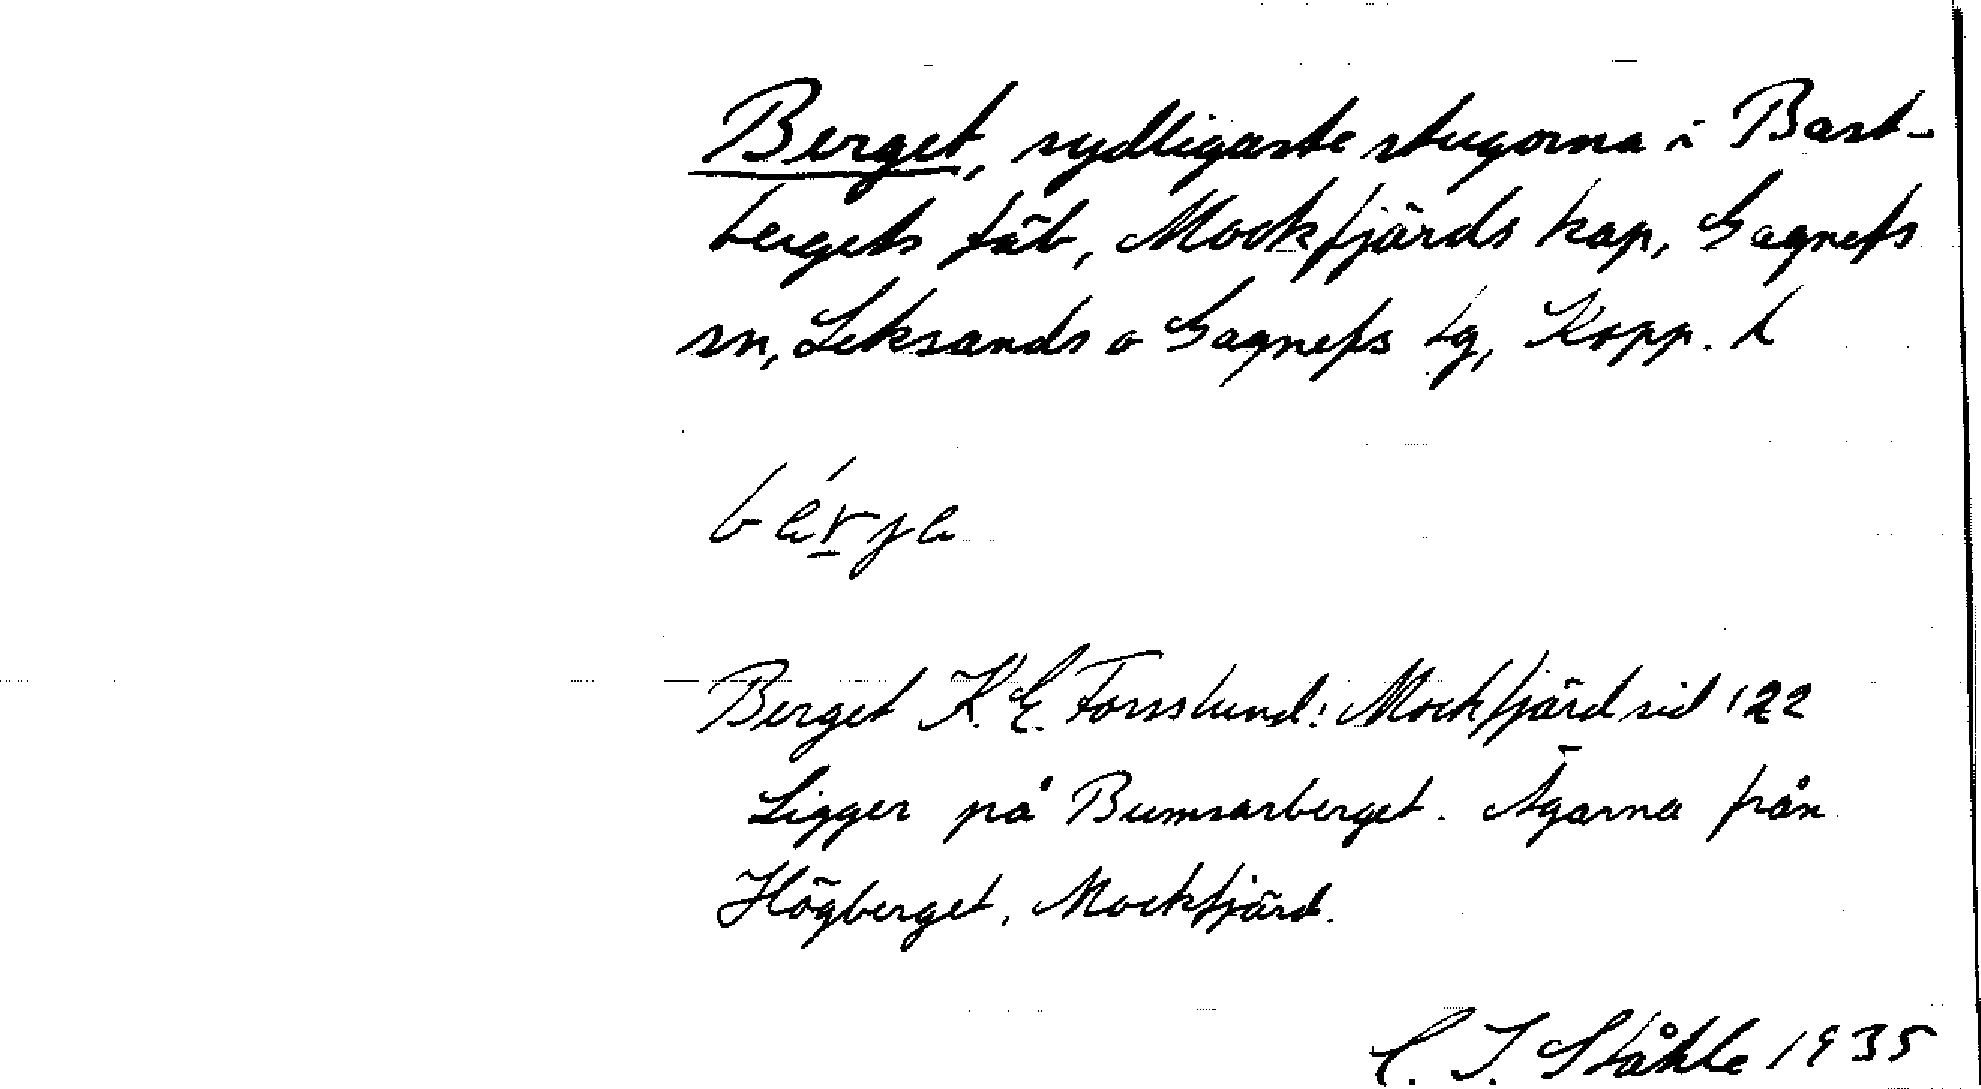 Berget, sydligaste stugorna i Bast-
bergets fäb, Mockfjärds kap, Gagnefs
sn, Leksands o Gagnefs tg, Kopp. l
Berget K. E. Forsslund: Mockfjärd sid 122
Ligger på Bumsarberget. Ägarna från
Högberget, Mockfjärd.
C. I. Ståhle 1935